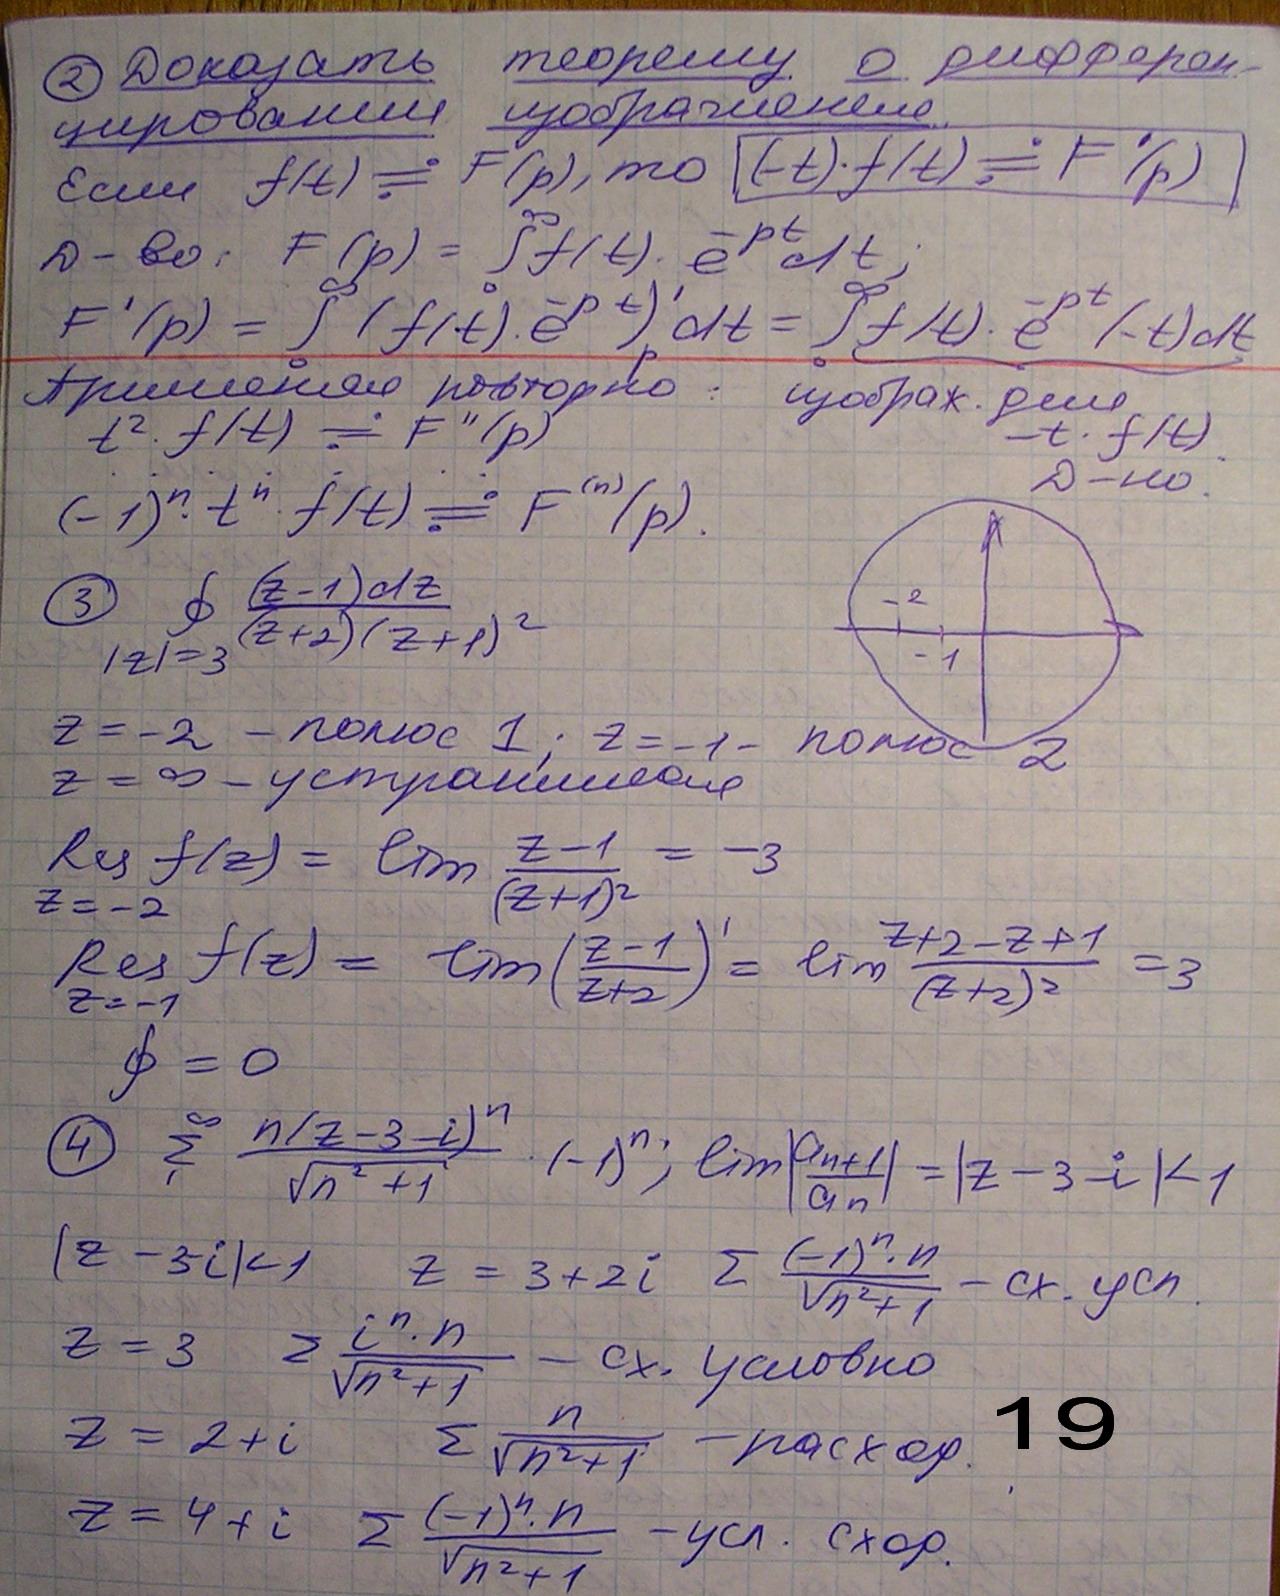 ② Доказать теорему о дифферен-
цировании изображения.
Если f(t) ≓ F(p), то (-t)·f(t) ≓ F'(p)
Д-во: F(p) = ∫₀^∞ f(t)·e^{-pt}dt;
F'(p) = ∫₀^∞ (f(t)·e^{-pt})'_p dt = ∫₀^∞ f(t)·e^{-pt}(-t)dt
Применяя повторно: изображ. для
t²·f(t) ≓ F''(p) -t·f(t).
. . . . . . Д-но.
(-1)ⁿ·tⁿ·f(t) ≓ F^{(n)}(p).
③ ∮_{|z|=3} (z-1)dz / (z+2)(z+1)²
-2
-1
z = -2 - полюс 1; z = -1 - полюс 2
z = ∞ - устранимая
Res_{z=-2} f(z) = lim (z-1)/(z+1)² = -3
Res_{z=-1} f(z) = lim ((z-1)/(z+2))' = lim (z+2-z+1)/(z+2)² = 3
∮ = 0
④ Σ₁^∞ n(z-3-i)ⁿ/√(n²+1) · (-1)ⁿ; lim|a_{n+1}/a_n| = |z-3-i|<1
|z-3-i|<1 z = 3+2i Σ (-1)ⁿ·n/√(n²+1) - сх. усл.
z = 3 Σ iⁿ·n/√(n²+1) - сх. условно
z = 2+i Σ n/√(n²+1) - расход.
19
z = 4+i Σ (-1)ⁿ·n/√(n²+1) - усл. сход.